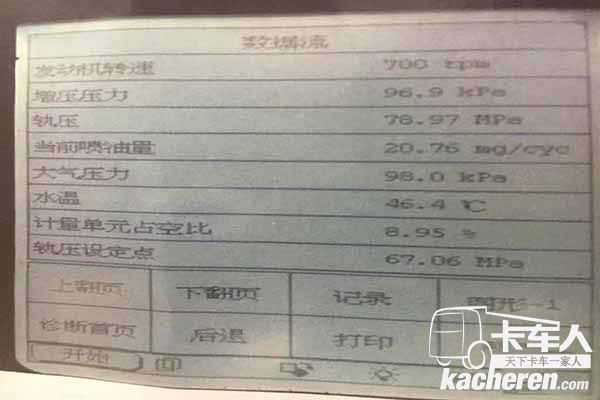 数据流
发动机转速 700 rpm
增压压力 96.9 kPa
轨压 78.97 MPa
当前喷油量 20.76 mg/cyc
大气压力 98.0 kPa
水温 46.4 ℃
计量单元占空比 8.95 %
轨压设定点 67.06 MPa
上翻页 下翻页 记录 图形-1
诊断首页 后退 打印
开始
卡车人
天下卡车一家人
kacheren.com